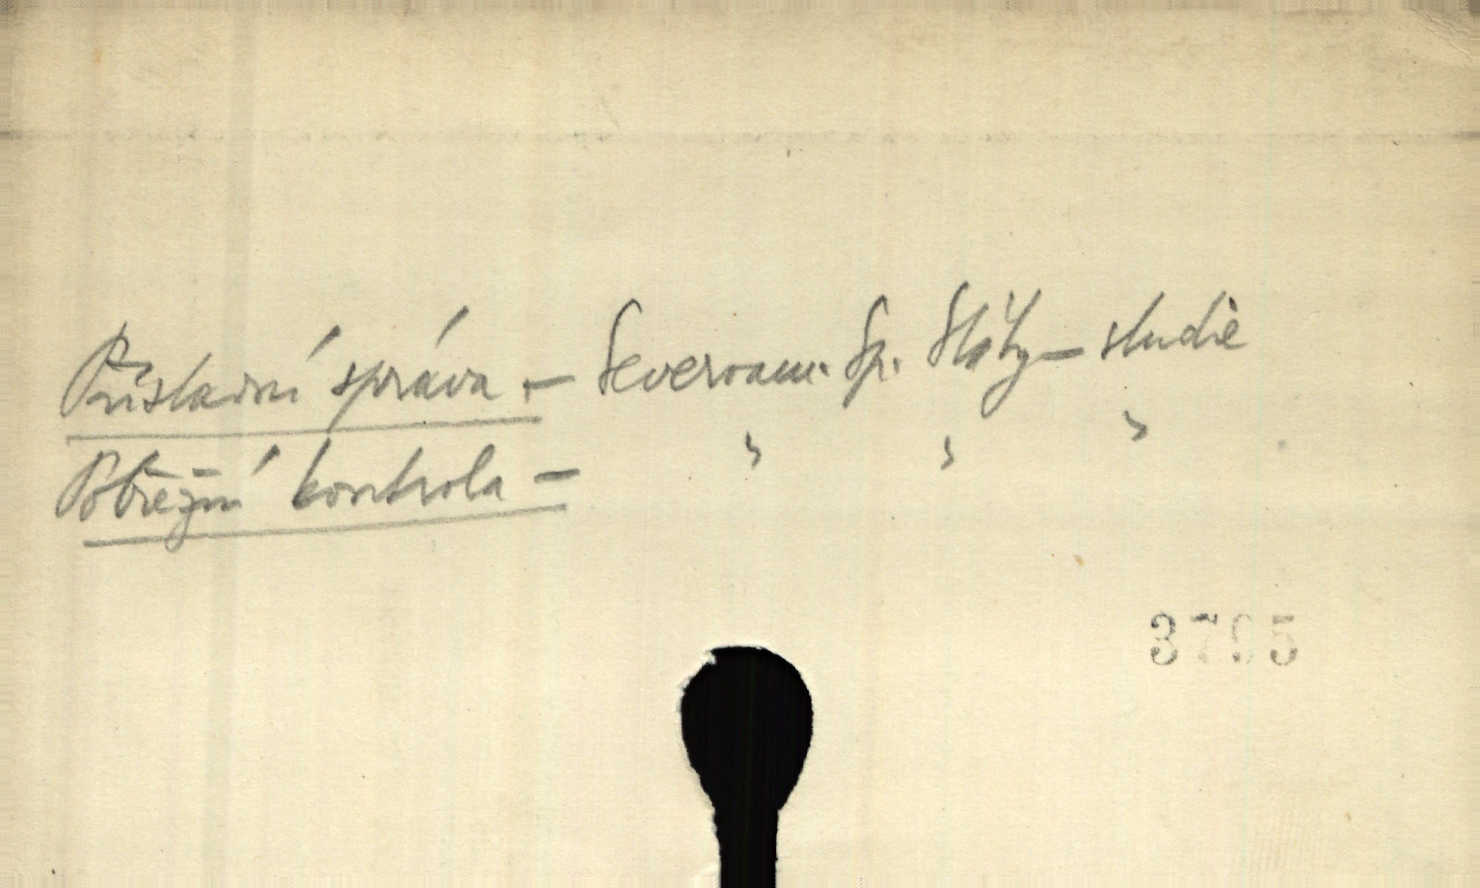 Přístavní správa. – Severoam. Sp. Státy – studie
Pobřežní kontrola – " " "
3795